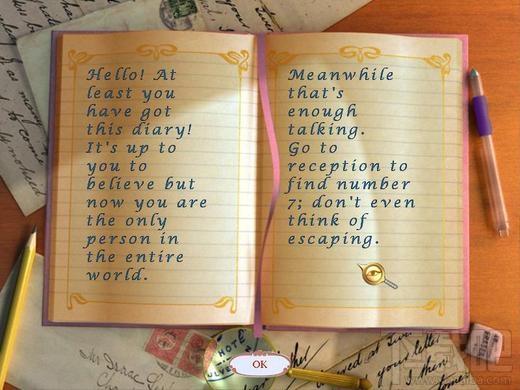 Hello! At
least you
have got
this diary!
It's up to
you to
believe but
now you are
the only
person in
the entire
world.
Meanwhile
that's
enough
talking.
Go to
reception to
find number
7; don't even
think of
escaping.
HOTE
OK